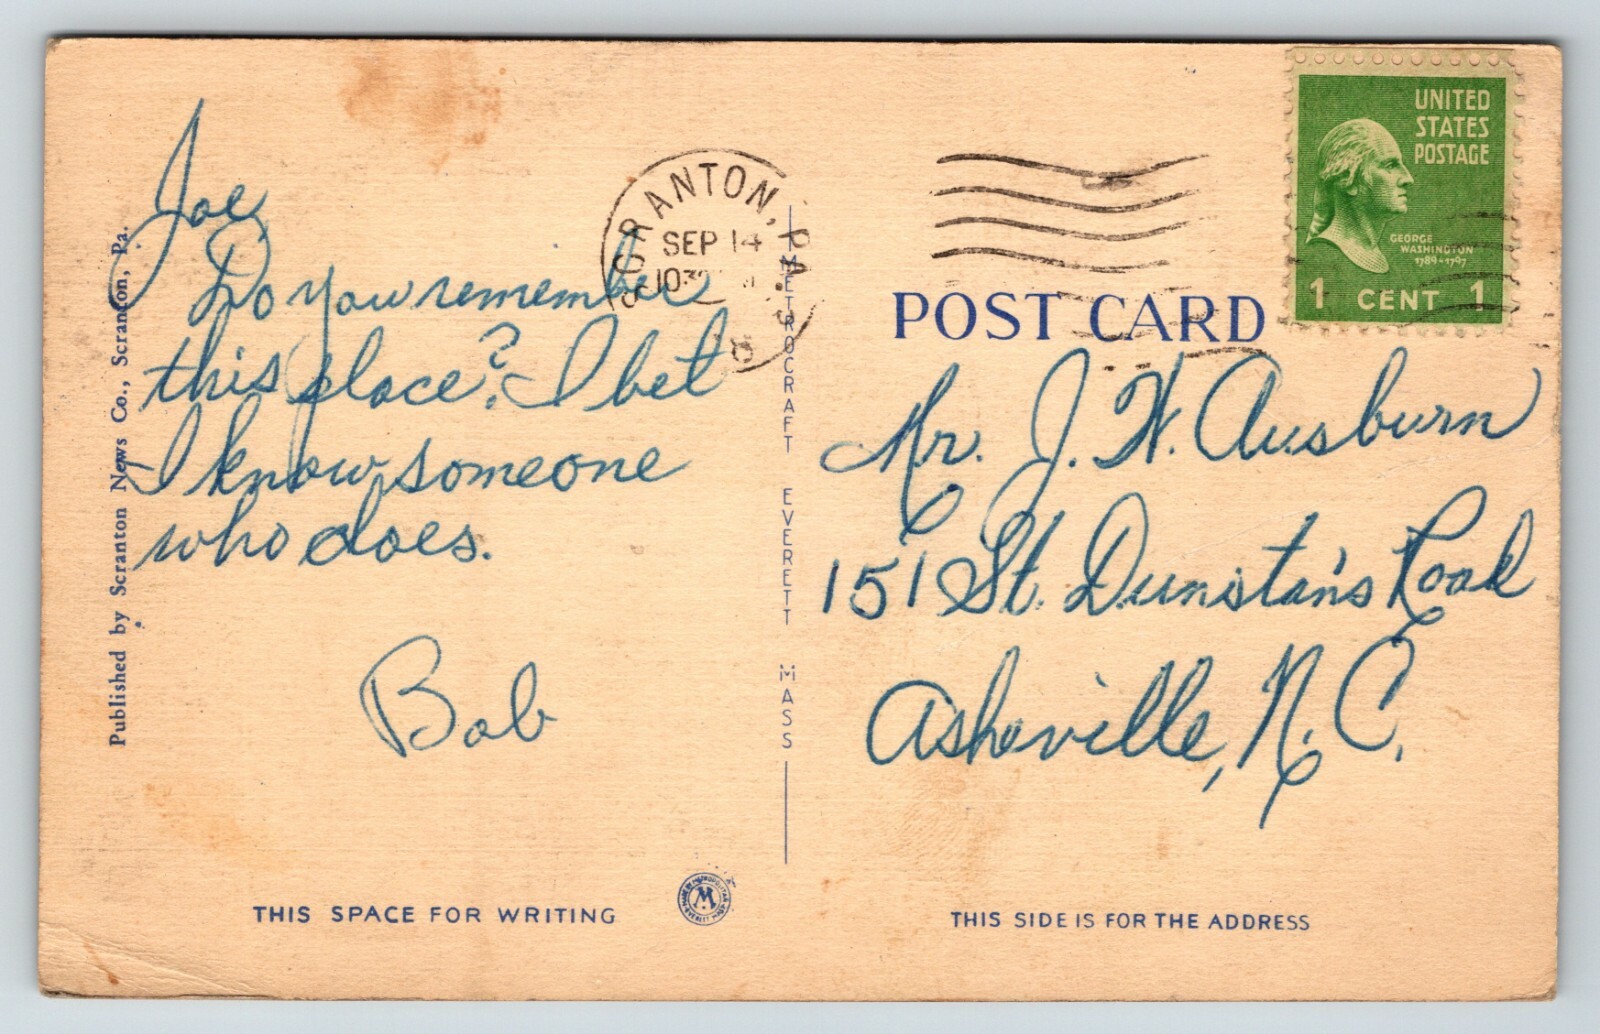 Joe
Do you remember
this place? I bet
I know someone
who does.
Bob
Published by Scranton News Co., Scranton, Pa.
SCRANTON, PA.
SEP 14
METROCRAFT EVERETT MASS
UNITED
STATES
POSTAGE
GEORGE
WASHINGTON
1789-1797
1 CENT 1
POST CARD
Mr. J. W. Ausburn
151 St. Dunstan's Road
Asheville, N.C.
THIS SPACE FOR WRITING
M
THIS SIDE IS FOR THE ADDRESS